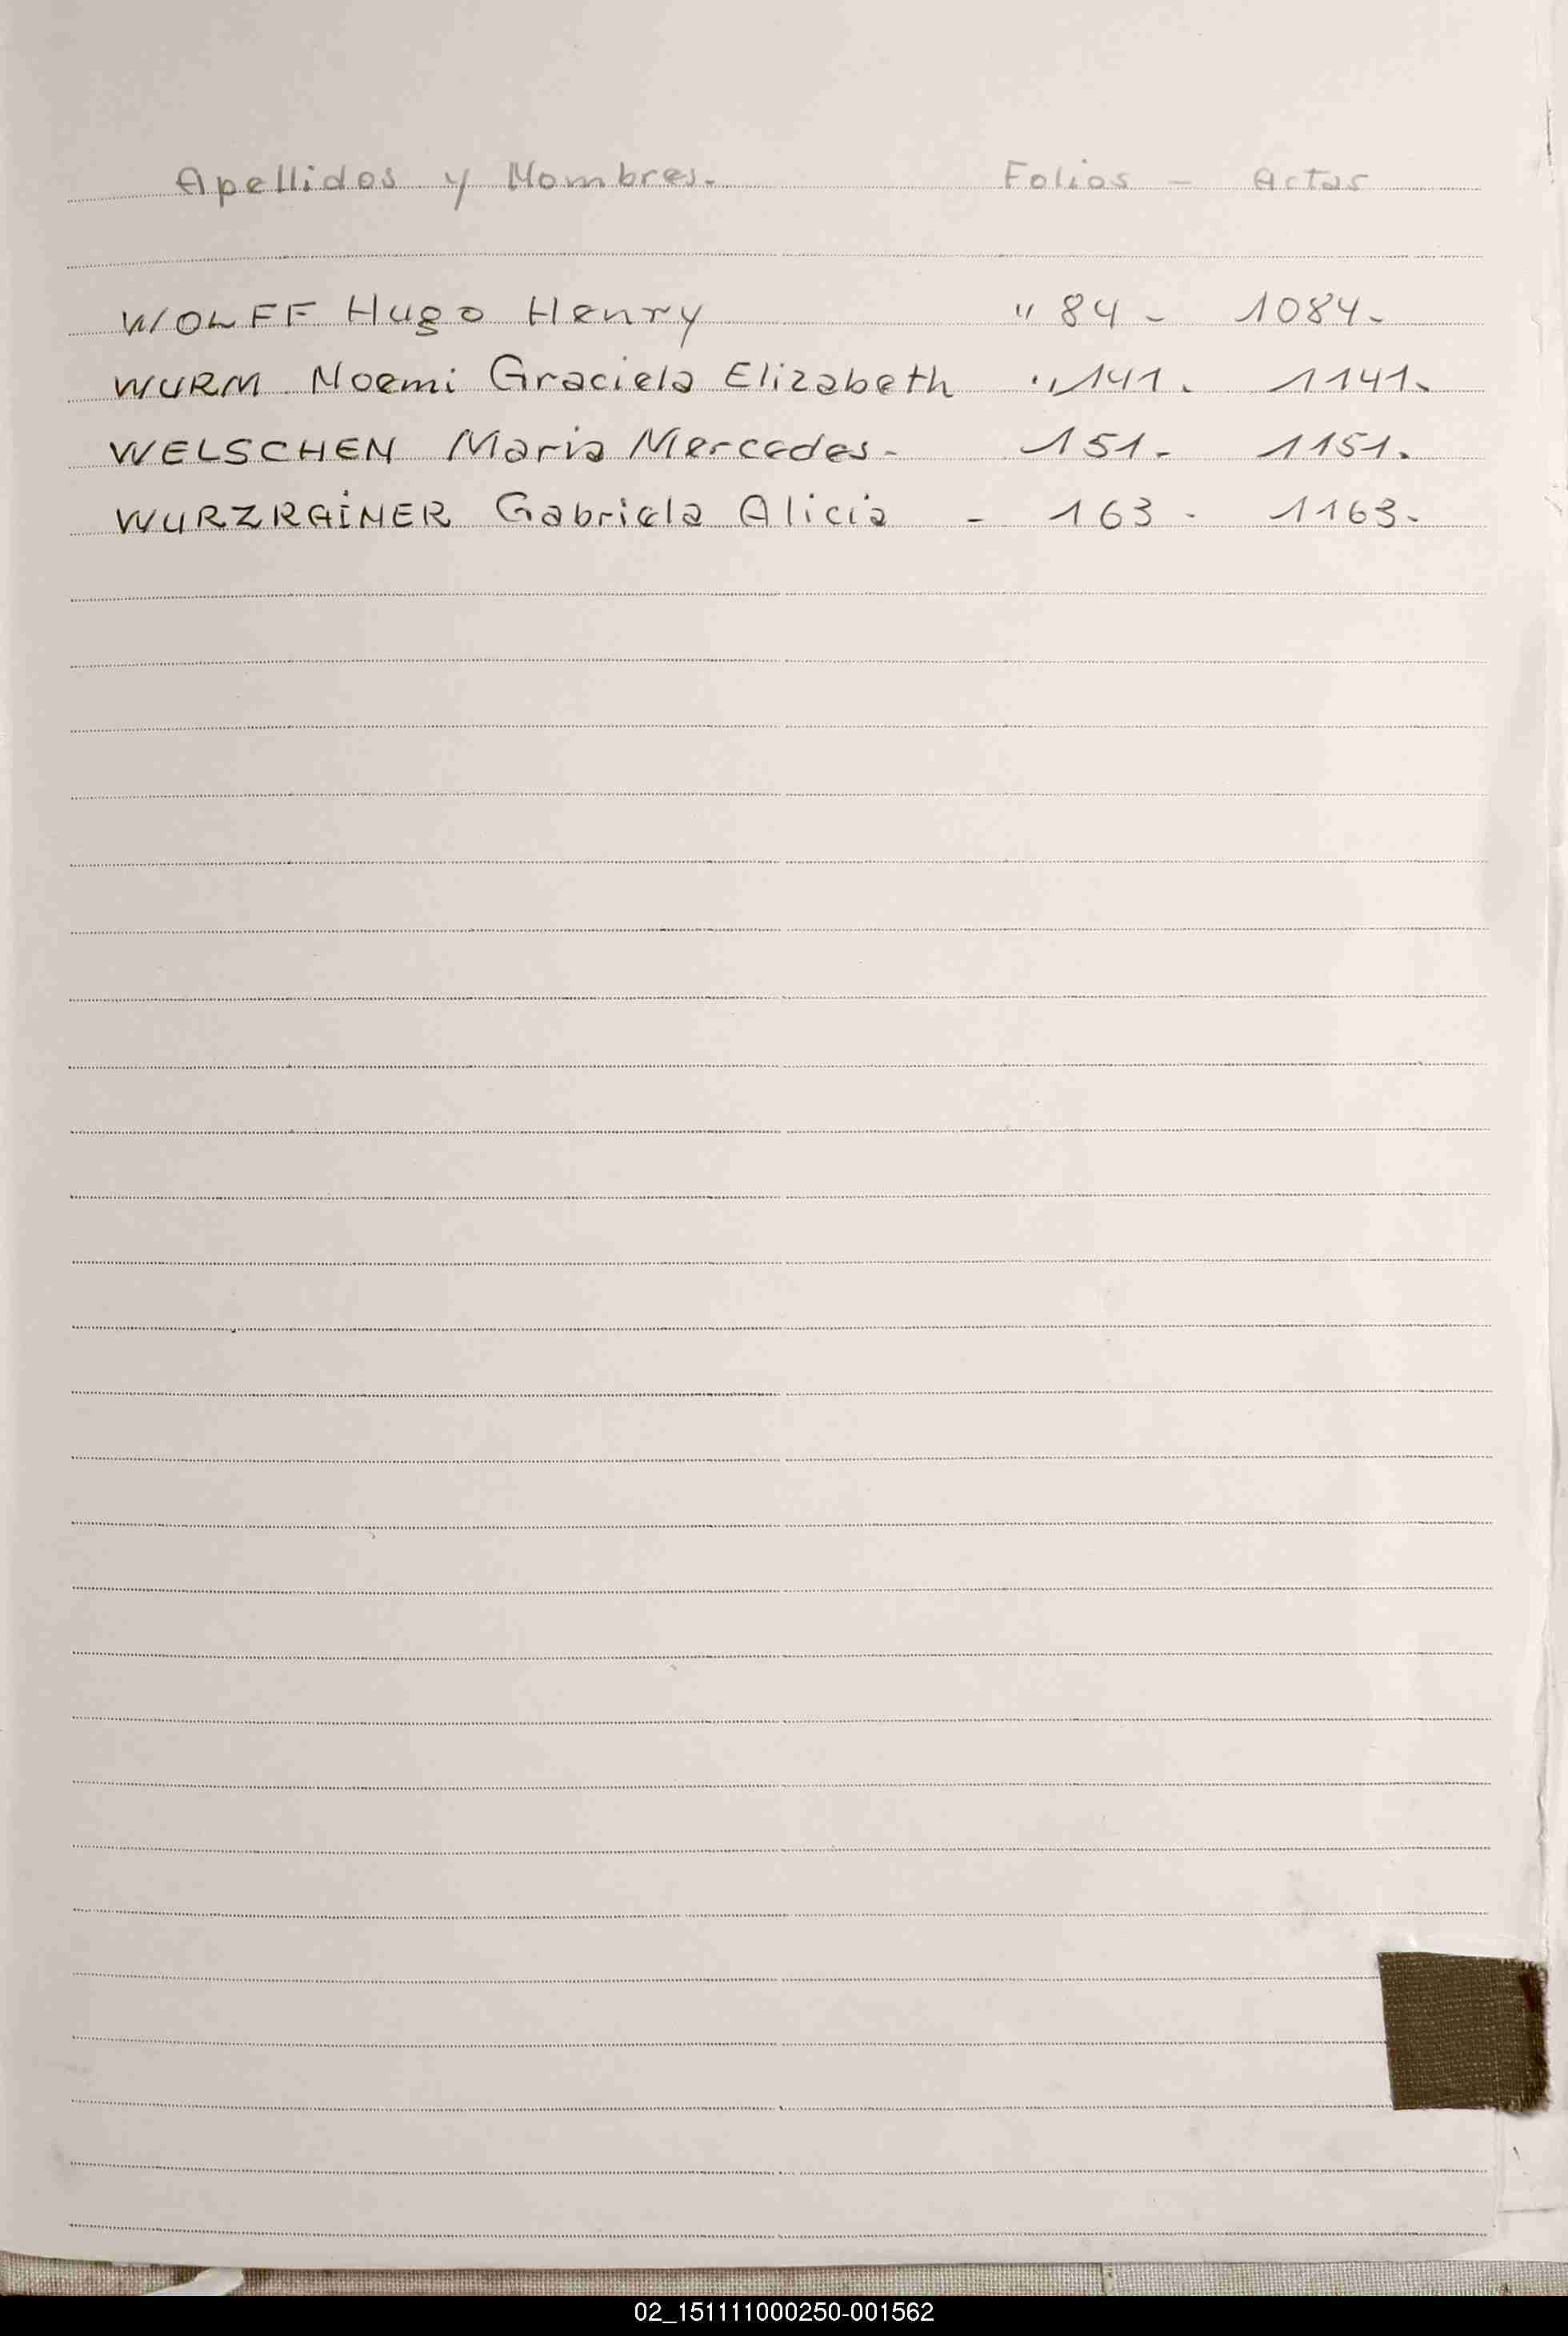 Apellidos y Nombres. Folios - Actas
WOLFF Hugo Henry " 84 - 1084.
WURM Noemi Graciela Elizabeth " 141. 1141.
WELSCHEN Maria Mercedes - 151. 1151.
WURZRAINER Gabriela Alicia - 163 - 1163.
02_151111000250-001562